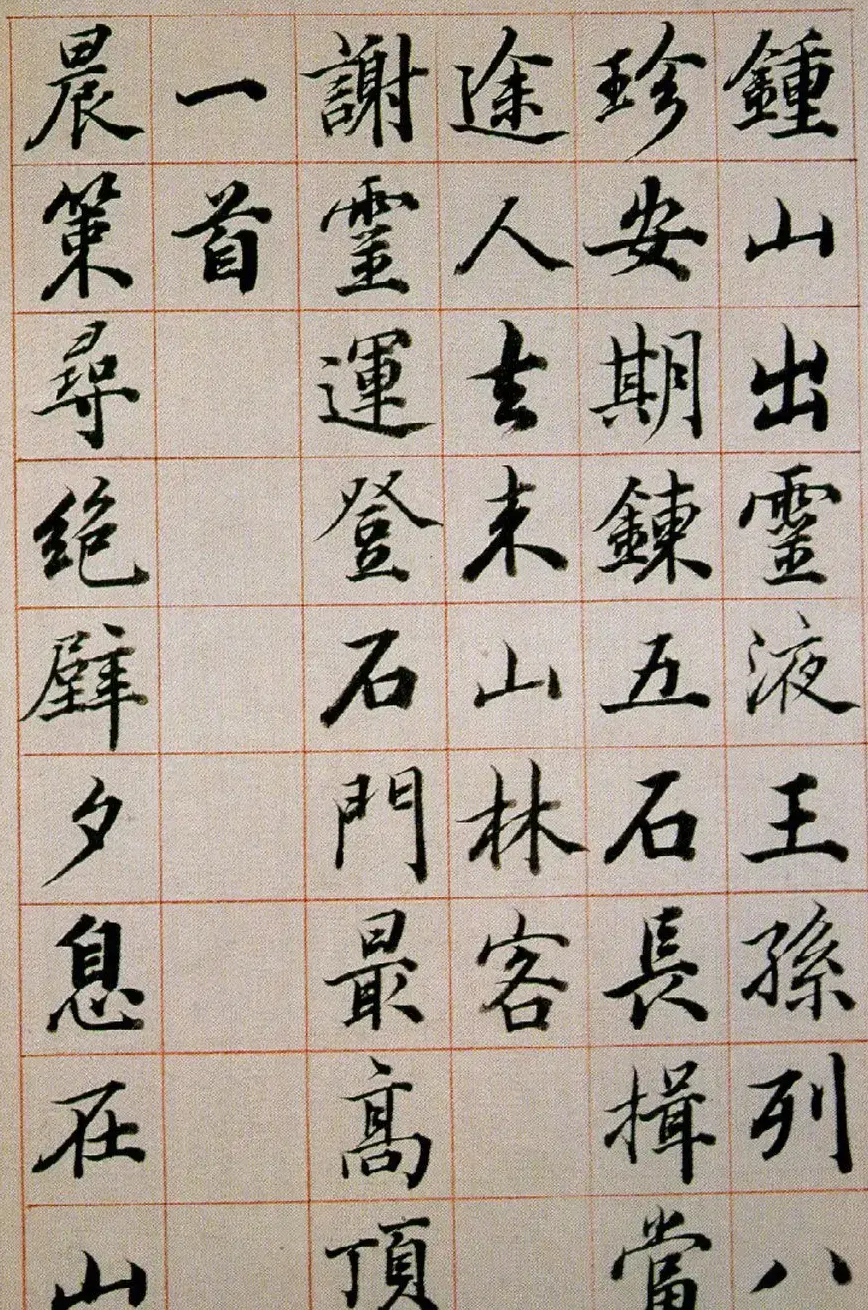 鍾山出靈液王孫列八
珍安期鍊五石長揖當
途人去来山林客
謝靈運登石門最高頂
一首
晨策尋絕壁夕息在山